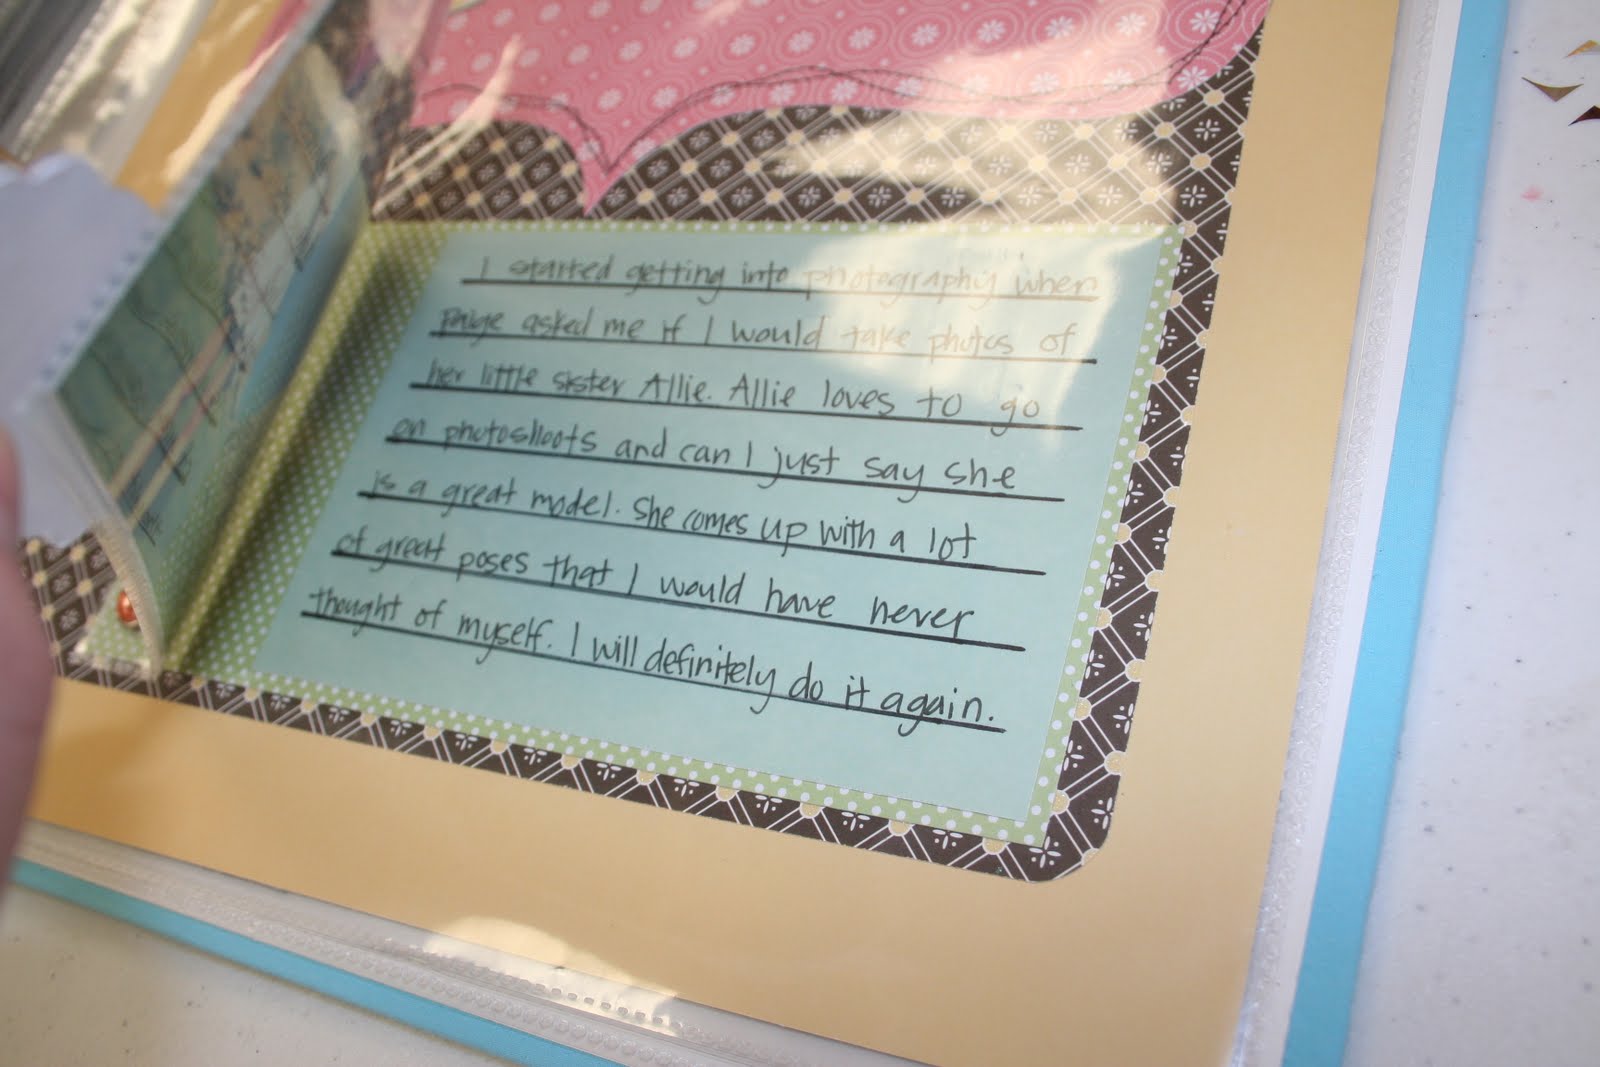 I started getting into photography when
Paige asked me if I would take photos of
her little sister Allie. Allie loves to go
on photoshoots and can I just say she
is a great model. She comes up with a lot
of great poses that I would have never
thought of myself. I will definitely do it again.